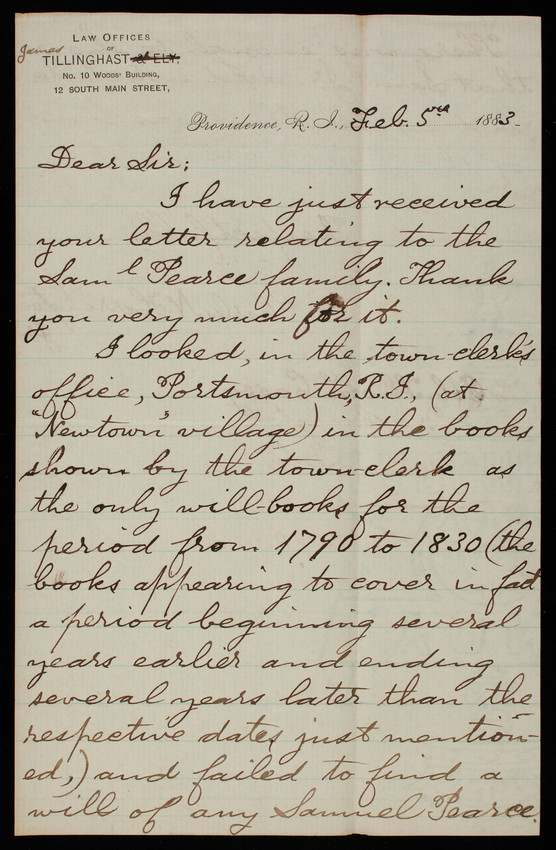 Law Offices
of
James
Tillinghast & Ely,
No. 10 Woods' Building,
12 South Main Street,
Providence, R. I., Feb. 5th 1883.
Dear Sir;
I have just received
your letter relating to the
Saml Pearce family. Thank
you very much for it.
I looked, in the town-clerk's
office, Portsmouth, R.I., (at
"Newtown" village) in the books
shown by the town-clerk as
the only will-books for the
period from 1790 to 1830 (the
books appearing to cover in fact
a period beginning several
years earlier and ending
several years later than the
respective dates just mention-
ed,) and failed to find a
will of any Samuel Pearce.